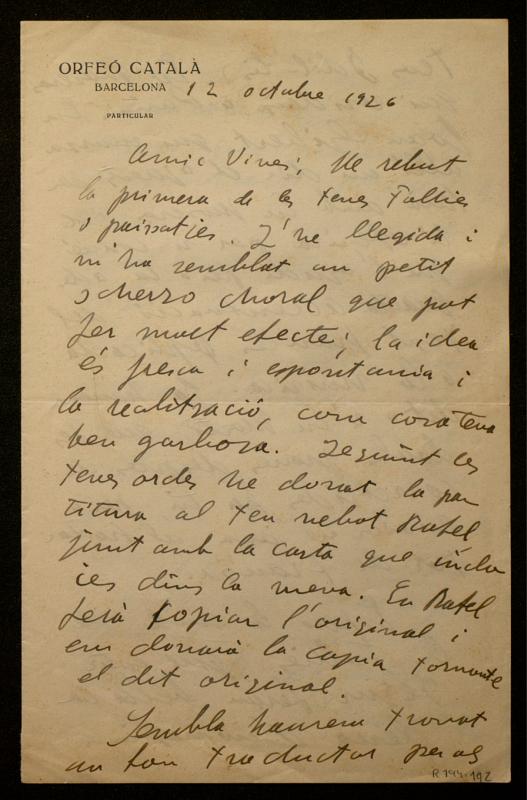 ORFEÓ CATALÀ
BARCELONA
PARTICULAR
12 octubre 1926
Amic Vives; He rebut
la primera de les teves Follies
o paisatjes. L'he llegida i
m'ha semblat un petit
scherzo choral que pot
fer molt efecte; la idea
és fresca i espontania i
la realització, com cosa teva
ben garbosa. Seguint les
teves ordes he donat la par
titura al teu nebot Rafel
junt amb la carta que inclo
ies dins la meva. En Rafel
ferà copiar l'original i
em donarà la copia tornante
el dit original.
Sembla haurem trovat
un bon traductor per als
R.194-192